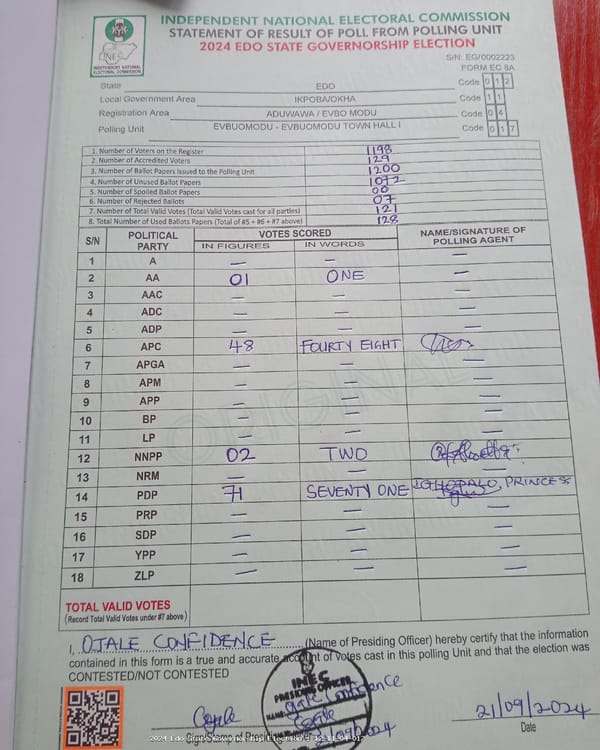 INDEPENDENT NATIONAL ELECTORAL COMMISSION
STATEMENT OF RESULT OF POLL FROM POLLING UNIT
2024 EDO STATE GOVERNORSHIP ELECTION
INEC
INDEPENDENT NATIONAL ELECTORAL COMMISSION
S/N: EG/0002223
FORM EC 8A
State EDO Code 0 1 2
Local Government Area IKPOBA/OKHA Code 1 1
Registration Area ADUWAWA / EVBO MODU Code 0 4
Polling Unit EVBUOMODU - EVBUOMODU TOWN HALL I Code 0 1 7
1. Number of Voters on the Register 1198
2. Number of Accredited Voters 129
3. Number of Ballot Papers Issued to the Polling Unit 1200
4. Number of Unused Ballot Papers 1072
5. Number of Spoiled Ballot Papers 00
6. Number of Rejected Ballots 07
7. Number of Total Valid Votes (Total Valid Votes cast for all parties) 121
8. Total Number of Used Ballots Papers (Total of #5 + #6 + #7 above) 128
S/N POLITICAL PARTY VOTES SCORED NAME/SIGNATURE OF POLLING AGENT
IN FIGURES IN WORDS
1 A — — —
2 AA 01 ONE —
3 AAC — — —
4 ADC — — —
5 ADP — — —
6 APC 48 FOURTY EIGHT
7 APGA — — —
8 APM — — —
9 APP — — —
10 BP — — —
11 LP — — —
12 NNPP 02 TWO
13 NRM — — —
14 PDP 71 SEVENTY ONE PRINCESS
15 PRP — — —
16 SDP — — —
17 YPP — — —
18 ZLP — — —
ORIGINAL
TOTAL VALID VOTES
(Record Total Valid Votes under #7 above)
I, OJALE CONFIDENCE (Name of Presiding Officer) hereby certify that the information
contained in this form is a true and accurate account of votes cast in this polling Unit and that the election was
CONTESTED/NOT CONTESTED
INEC
PRESIDING OFFICER
21/09/2024
Date